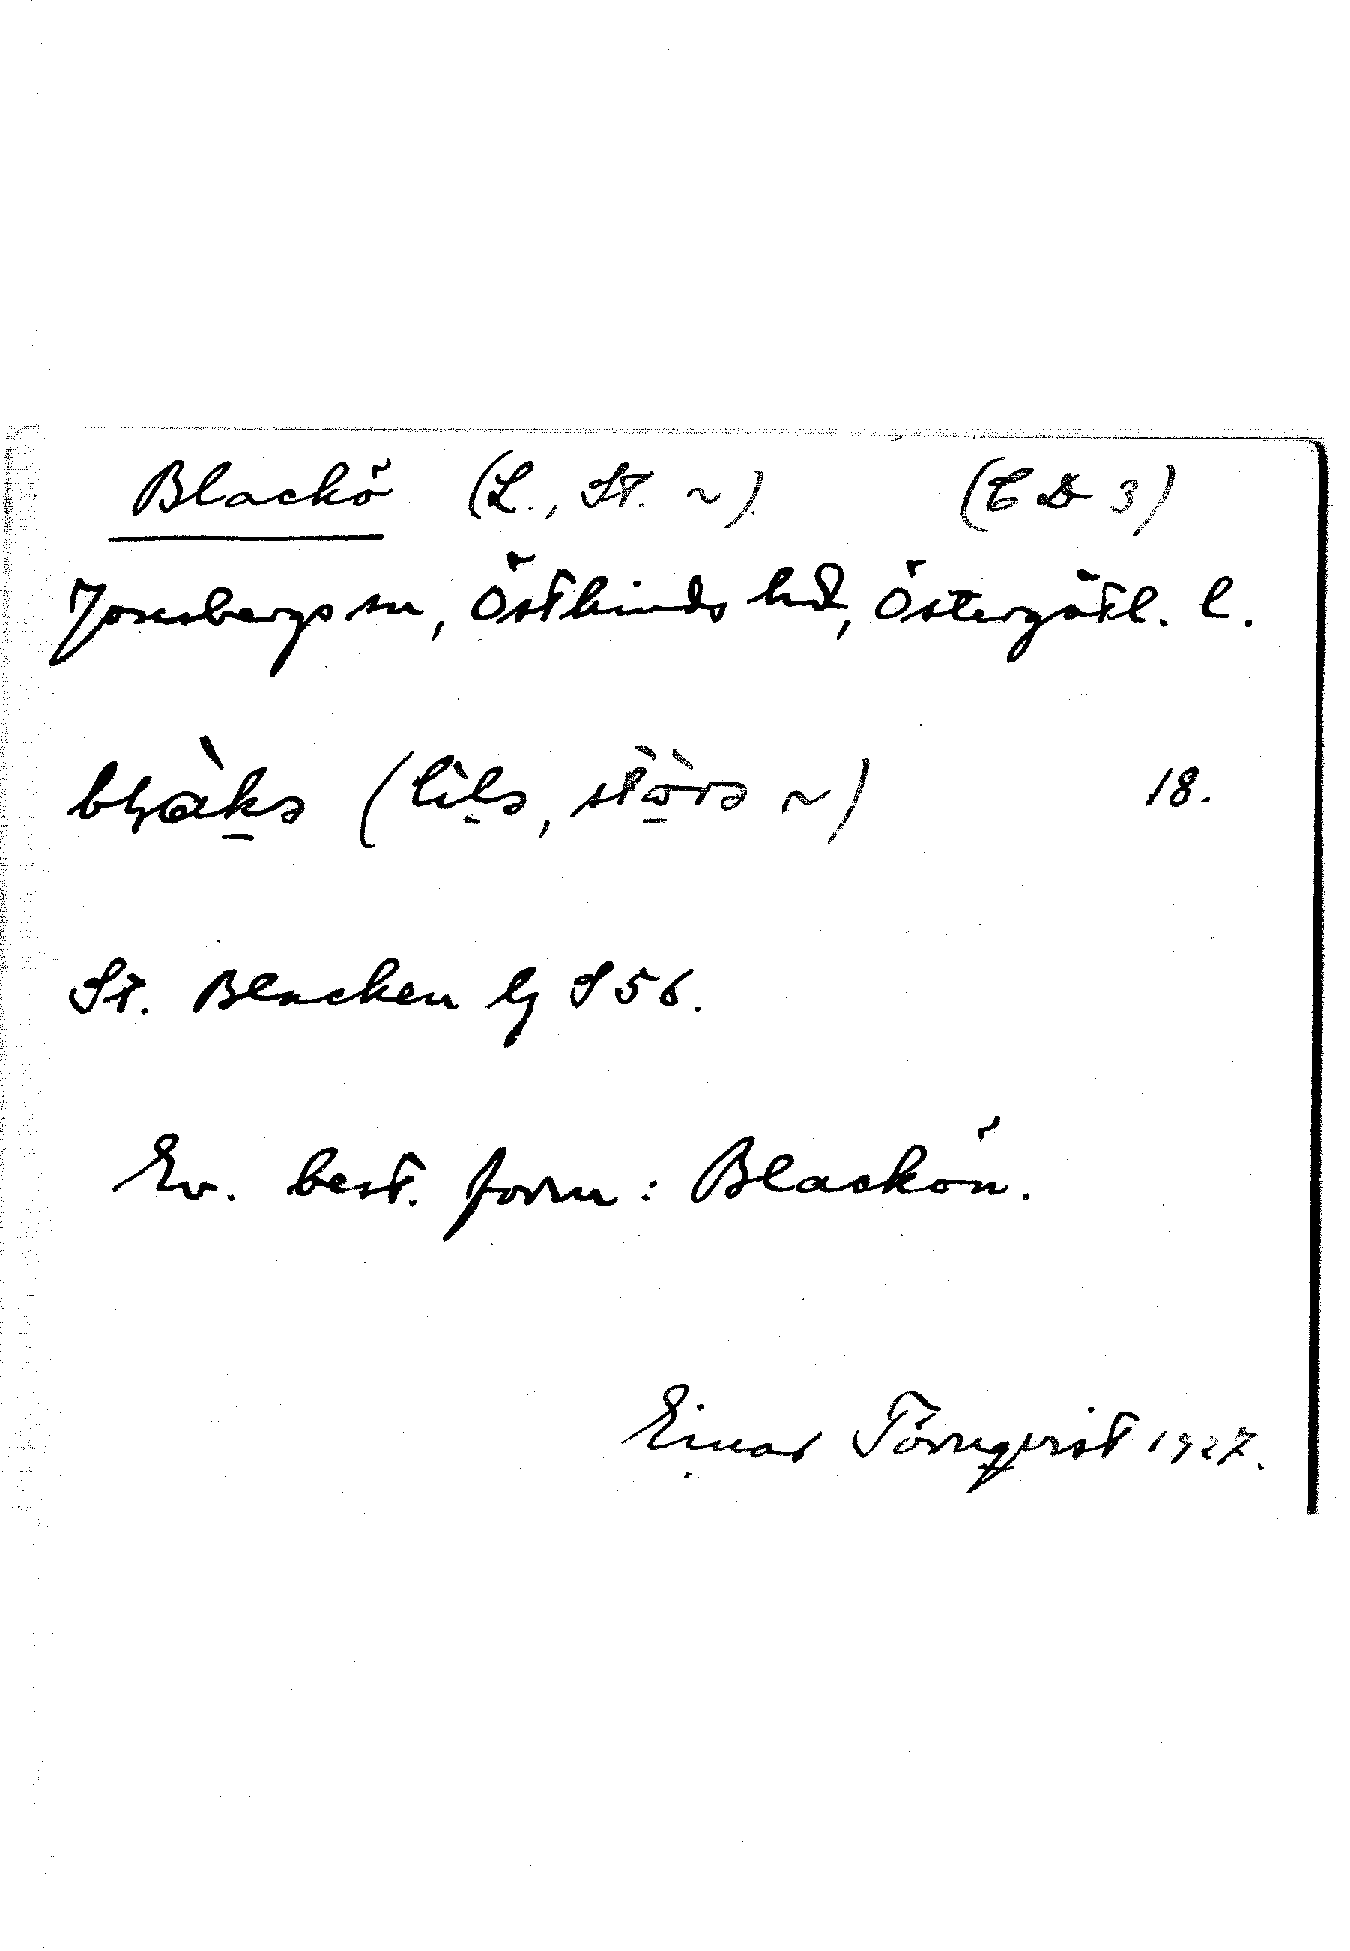 Blackö (L., St. ~) (CD 3)
Jonsbergs sn, Östkinds hd, Östergötl. l.
bɽàkə (lìlə, stò̈rə ~) 18.
St. Blacken lg S 56.
Ev. best. form: Blackön.
Einar Törnqvist 1927.